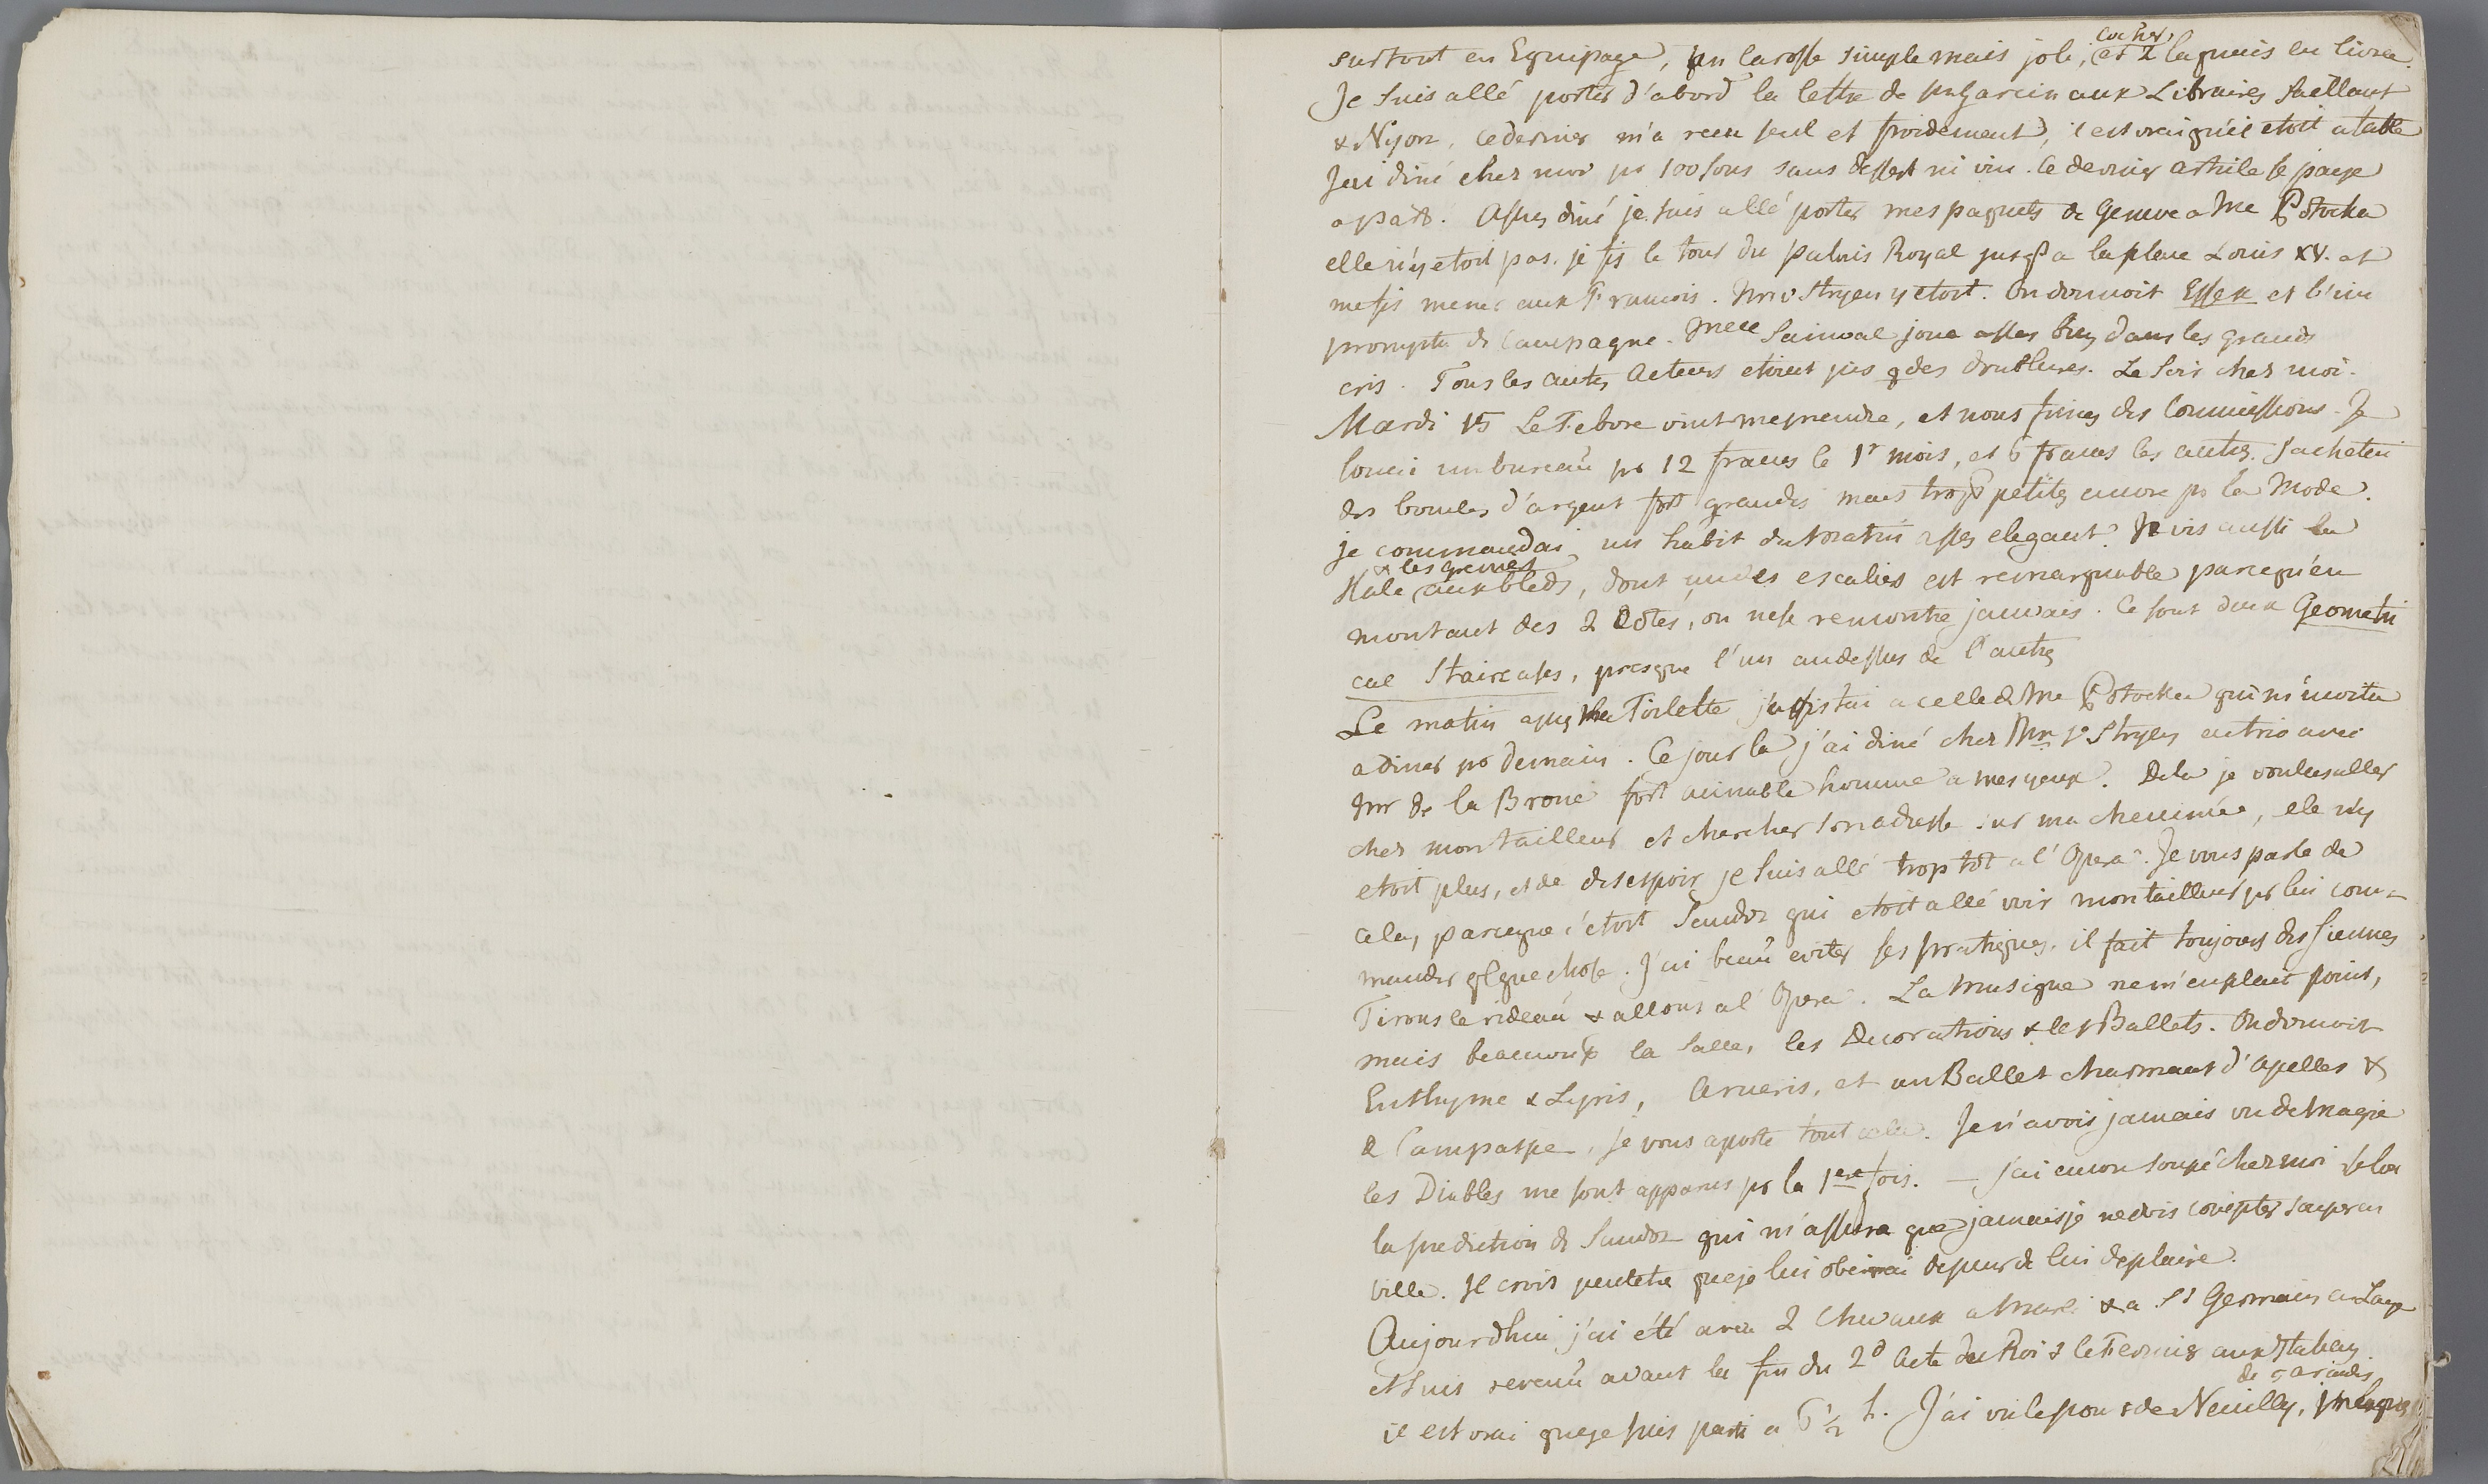 cocher
surtout en Equipage, un carosse simple mais joli, et 2 laquais en livrée.
Je suis allé porter d'abord la lettre de Mr Garcin aux Libraires Saillant
& Nyon, ce dernier m'a recu seul et froidement, il est vrai qu'il etoit a table
J'ai diné chez moi pr 100 sous sans dessert ni vin. Ce dernier article se paye
a part. Apres diné je suis allé porter mes paquets de Geneve a Me Pstocka
elle n'y etoit pas. je fis le tour du palais Royal jusqu'a la place Louis XV. et
me fis mener aux Francois. Mr v Stryen y etoit. On donnoit Essex et l'im
promptu de Campagne. Melle Sainval joue asses bien dans les grands
cris. Tous les autres Acteurs etoient pis q des doublures. Le soir chez moi.
Mardi 15 Le Febvre vint me prendre, et nous fimes des Commissions. Je
louai un bureau pr 12 francs le 1r mois, et 6 francs les autres. J'achetai
des boucles d'argent fort grandes mais trop petites encore pr la Mode.
je commandai un habit du matin asses elegant. Je vis aussi la
& les greniers
Hale aux bleds, dont un des escaliers est remarquable parcequ'en
montant des 2 Côtés, on ne se rencontre jamais. Ce sont deux Geometri
cal Staircases, presque l'un audessus de l'autre
Le matin apres ma Toilette j'assistai a celle de Me Pstocka qui m'invita
a diner pr demain. Ce jour la j'ai diné chez Mr v Stryen en trio avec
Mr de la Broue fort aimable homme a mes yeux. De la je voulus aller
chez mon tailleur et chercher son adresse sur ma cheminée, elle n'y
etoit plus, et de desespoir je suis allé trop tôt a l'Opera. Je vous parle de
cela, parceque c'etoit Sandoz qui etoit allé voir mon tailleur pr lui com-
mander qlque chose. J'ai beau eviter ses pratiques, il fait toujours des siennes
Tirons le rideau & allons a l'Opera. La Musique ne m'en plait point,
mais beaucoup la Salle, les Decorations & les Ballets. On donnoit
Euthyme & Lyris, Arueris, et un Ballet charmant d'Apelles &
& Campaspe, je vous aporte tout cela. Je n'avois jamais vu de Magie
les Diables me sont apparus pr la 1ere fois. — j'ai encore soupé chez moi selon
la prediction de Sandoz qui m'assura que jamais je ne dois compter souper en
ville. Il croit peutetre que je lui obeirai de peur de lui deplaire.
Aujourdhui j'ai été avec 2 Chevaux a Marli & a St Germain en Laye
et suis revenu avant la fin du 2d Acte du Roi & le Fermier aux Italiens
de 5 arcades
il est vrai que je suis parti a 6 1/2 h. J'ai vu le pont de Neuilly,